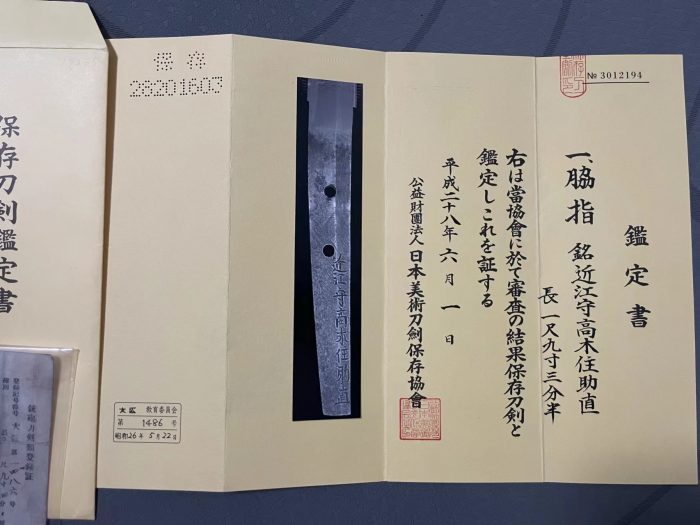 № 3012194
鑑定書
一、脇指 銘近江守高木住助直
長一尺九寸三分半
右は當協會に於て審査の結果保存刀剣と
鑑定しこれを証する
平成二十八年六月一日
公益財團法人日本美術刀劍保存協會
近江守高木住助直
保存
28201603
大阪 教育委員会
第 1486 号
昭和26年 5月22日
保存刀剣鑑定書
銃砲刀剣類登録証
登録記号番号 大阪 第一四八六号